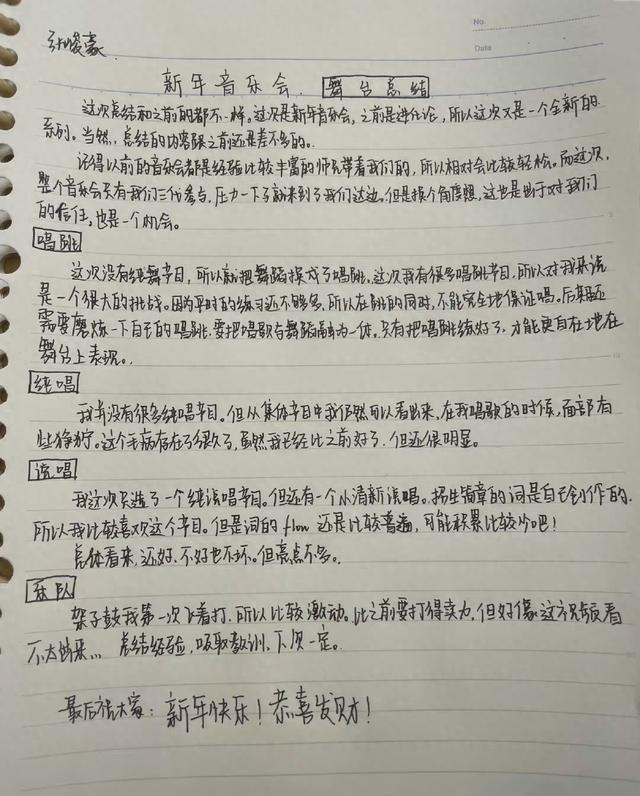 No.
Date
张峻豪
新年音乐会. 舞台总结
这次总结和之前的都不一样。这次是新年音乐会,之前是进化论,所以这次又是一个全新的
系列。当然,总结的内容跟之前还是差不多的。
记得以前的音乐会都是经验比较丰富的师兄带着我们的,所以相对会比较轻松。而这次,
整个音乐会只有我们三代参与,压力一下子就来到了我们这边。但是换个角度想,这也是出于对我们
的信任,也是一个机会。
唱跳
这次没有纯舞节目,所以就把舞蹈换成了唱跳。这次我有很多唱跳节目,所以对我来说
是一个很大的挑战。因为平时的练习还不够多,所以在跳的同时,不能完全地保证唱。后期还
需要磨炼一下自己的唱跳,要把唱歌与舞蹈融为一体。只有把唱跳练好了,才能更自在地在
舞台上表现。
纯唱
我并没有很多纯唱节目。但从集体节目中我仍然可以看出来,在我唱歌的时候,面部有
些狰狞。这个毛病存在了很久了,虽然我已经比之前好了,但还很明显。
说唱
我这次只选了一个纯说唱节目。但还有一个小清新说唱。招生简章的词是自己创作的,
所以我比较喜欢这个节目。但是词的flow还是比较普遍,可能积累比较少吧!
总体看来,还好,不好也不坏。但亮点不多。
乐队
架子鼓我第一次飞着打,所以比较激动。比之前要打得卖力,但好像这次视频看
不太出来... 总结经验,吸取教训,下次一定。
最后祝大家:新年快乐!恭喜发财!